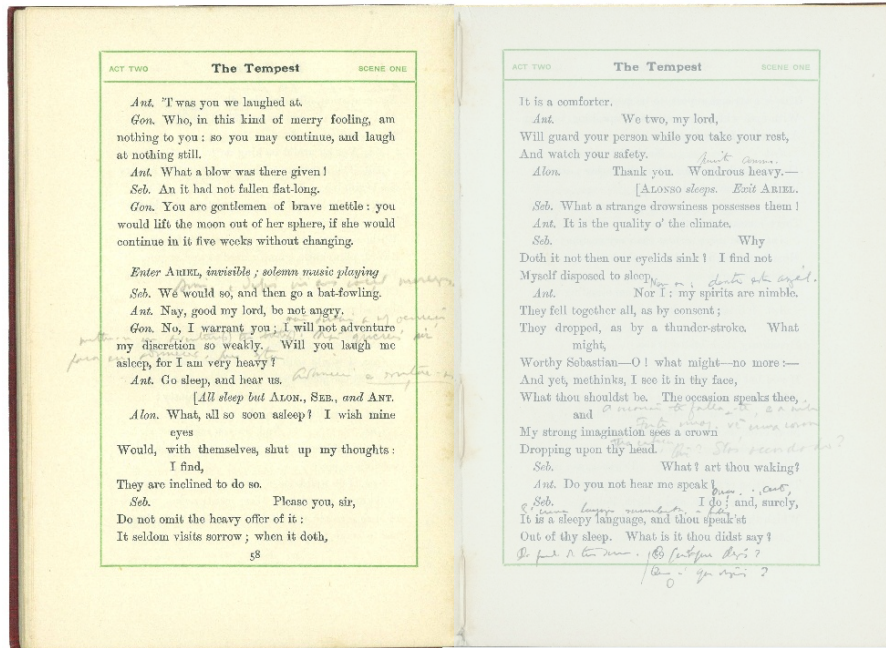 ACT TWO The Tempest SCENE ONE
Ant. 'T was you we laughed at.
Gon. Who, in this kind of merry fooling, am
nothing to you : so you may continue, and laugh
at nothing still.
Ant. What a blow was there given !
Seb. An it had not fallen flat-long.
Gon. You are gentlemen of brave mettle : you
would lift the moon out of her sphere, if she would
continue in it five weeks without changing.
Enter ARIEL, invisible ; solemn music playing
Seb. We would so, and then go a bat-fowling.
Ant. Nay, good my lord, be not angry.
Gon. No, I warrant you ; I will not adventure
my discretion so weakly. Will you laugh me
asleep, for I am very heavy ?
Ant. Go sleep, and hear us.
[All sleep but ALON., SEB., and ANT.
Alon. What, all so soon asleep ? I wish mine
eyes
Would, with themselves, shut up my thoughts :
I find,
They are inclined to do so.
Seb. Please you, sir,
Do not omit the heavy offer of it :
It seldom visits sorrow ; when it doth,
58
ACT TWO The Tempest SCENE ONE
It is a comforter.
Ant. We two, my lord,
Will guard your person while you take your rest,
And watch your safety.
Alon. Thank you. Wondrous heavy.—
[ALONSO sleeps. Exit ARIEL.
Seb. What a strange drowsiness possesses them !
Ant. It is the quality o' the climate.
Seb. Why
Doth it not then our eyelids sink ? I find not
Myself disposed to sleep.
Ant. Nor I : my spirits are nimble.
They fell together all, as by consent ;
They dropped, as by a thunder-stroke. What
might,
Worthy Sebastian—O ! what might—no more :—
And yet, methinks, I see it in thy face,
What thou shouldst be. The occasion speaks thee,
and
My strong imagination sees a crown
Dropping upon thy head.
Seb. What ? art thou waking ?
Ant. Do you not hear me speak ?
Seb. I do ; and, surely,
It is a sleepy language, and thou speak'st
Out of thy sleep. What is it thou didst say ?